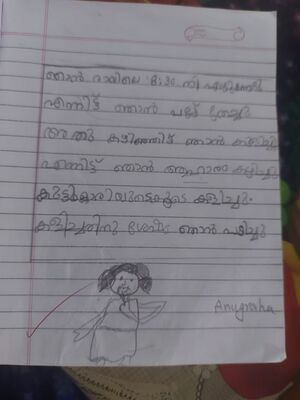 ഞാൻ രാവിലെ 8:30 നി എഴുന്നേറ്റു
എന്നിട്ട് ഞാൻ പല്ല് തേച്ചു
അതു കഴിഞ്ഞിട്ട് ഞാൻ കുളിച്ചു
എന്നിട്ട് ഞാൻ ആഹാരം കഴിച്ചു
കൂട്ടുകാരിയുടെകൂടെ കളിച്ചു.
കളിച്ചതിനു ശേഷം ഞാൻ പഠിച്ചു
Anugraha